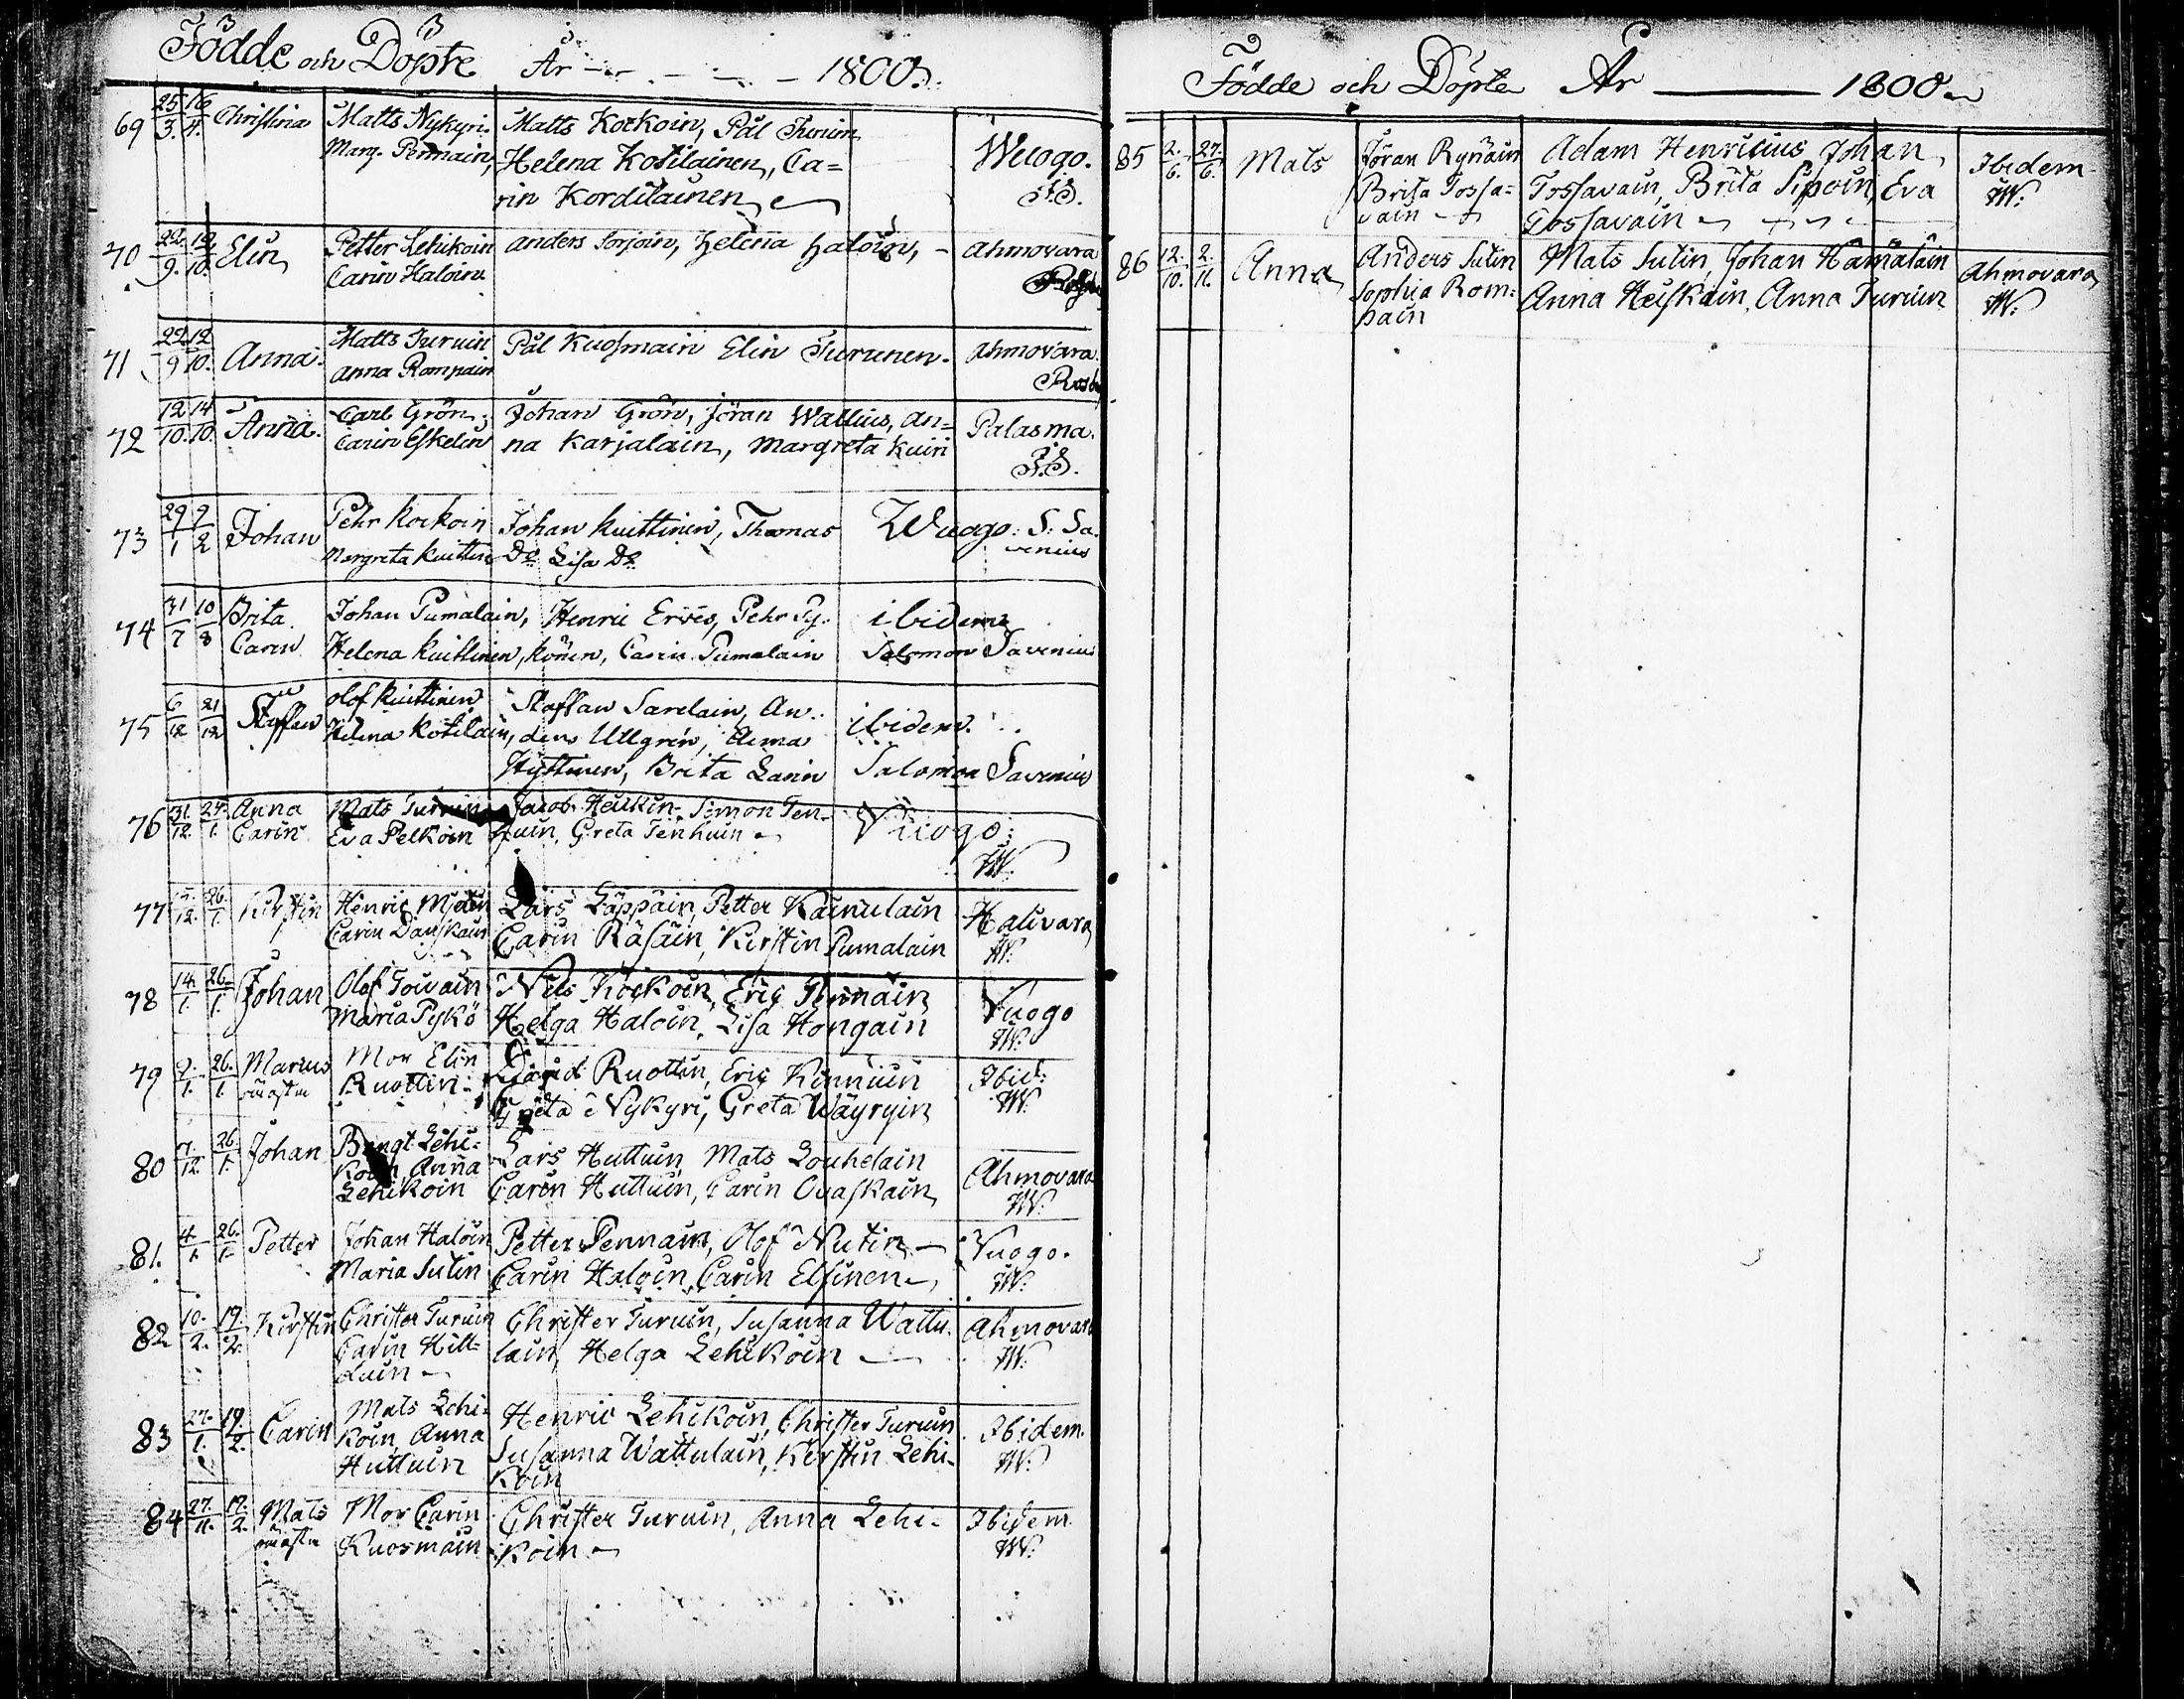 Födde och Döpte År 1800.
69 25/3. 16/4. Christina Matts Nykyri. Matts Kockoin, Pål Turuin
Marg. Pennain, Helena Kotilainen, Ca= Wuogo.
rin Kordilainen J.S.
70 22/9. 12/10. Elin Petter Lehikoin Anders Sorjoin, Helena Haloin, Ahmovara
Carin Haloin
71 22/9 12/10. Anna Matts Turuin Pål Kuosmain Elin Turunen. Ahmovara.
Anna Rompain
72 12/10. 14/10. Anna. Carl Grön. Johan Grön, Jöran Wallius, An= Palasma.
Carin Eskelin na Karjalain, Margreta Kuiri J.S.
73 29/1 9/2 Johan Pehr Kockoin Johan Kuittinen, Thomas Wuogo: S: Sa
Margreta Kuittinen Do Lisa Do venius
74 31/7 10/8 Brita Johan Pumalain, Henric Erves, Pehr Py- ibidem
Caren Helena Kuittinen, könen, Carin Pumalain Salomon Savenius
75 6/12 21/12 Staffan Olof Kuittinen Staffan Sarelain, An- ibidem.
Helena Kotilain, ders Ullgren, Anna
Hyttinen, Brita Larin Salomon Savenius
76 31./12. 24./1. Anna Mats Turuin Jacob Heiskin, Simon Ten- Vuogo:
Carin Eva Pelkoin huin, Greta Tenhuin W.
77 15./12. 26./1. Kirstin Henric Lars Läppäin, Petter Kainulain Halivara
Carin Danskain Carin Räsäin, Kirstin Pumalain W.
78 14./1. 26./1. Johan Olof Toivain Nils Kockoin, Eric Pennain Vuogo
Maria Pykö Helga Haloin, Lisa Hongain W.
79 9./1. 26./1. Marcus Mor Elin David Ruottin, Eric Kinnuin Ibid:
oäckta Ruottin Greta Nykyri, Greta Wäyryin W.
80 7./12. 26./1. Johan Bengt Lehi= Lars Huttuin, Mats Louhelain
koin, Anna Carin Huttuin, Carin Ovaskain Ahmovara
Lehikoin W.
81. 4./1. 26./1. Petter Johan Haloin Petter Pennain, Olof Nutin Vuogo.
Maria Sutin Carin Haloin, Carin Elsinen W.
82 10./2. 19./2. Kirstin Christer Turuin Christer Turuin, Susanna Wattu- Ahmovara
Carin Hilt= lain, Helga Lehikoin W.
tuin
83 27./1. 19./2. Carin Mats Lehi= Henric Lehikoin, Christer Turuin Ibidem.
koin, Anna Susanna Wattulain, Kirstin Lehi- W.
Huttuin koin
84 27./11. 19./2. Mats Mor Carin Christer Turuin, Anna Lehi- Ibidem
oäckta Kuosmain koin W.
Födde och Döpte År 1800
85 2./6. 27./6. Mats Jöran Rynäin Adam Henricius, Johan Ibidem
Brita Tossa= Tossavain, Brita Sipoin, Eva W.
vain Tossavain
86 12./10. 2./11. Anna Anders Sutin Mats Sutin, Johan Hämäläin Ahmovara
Sophia Rom= Anna Heiskain, Anna Turuin W.
pain